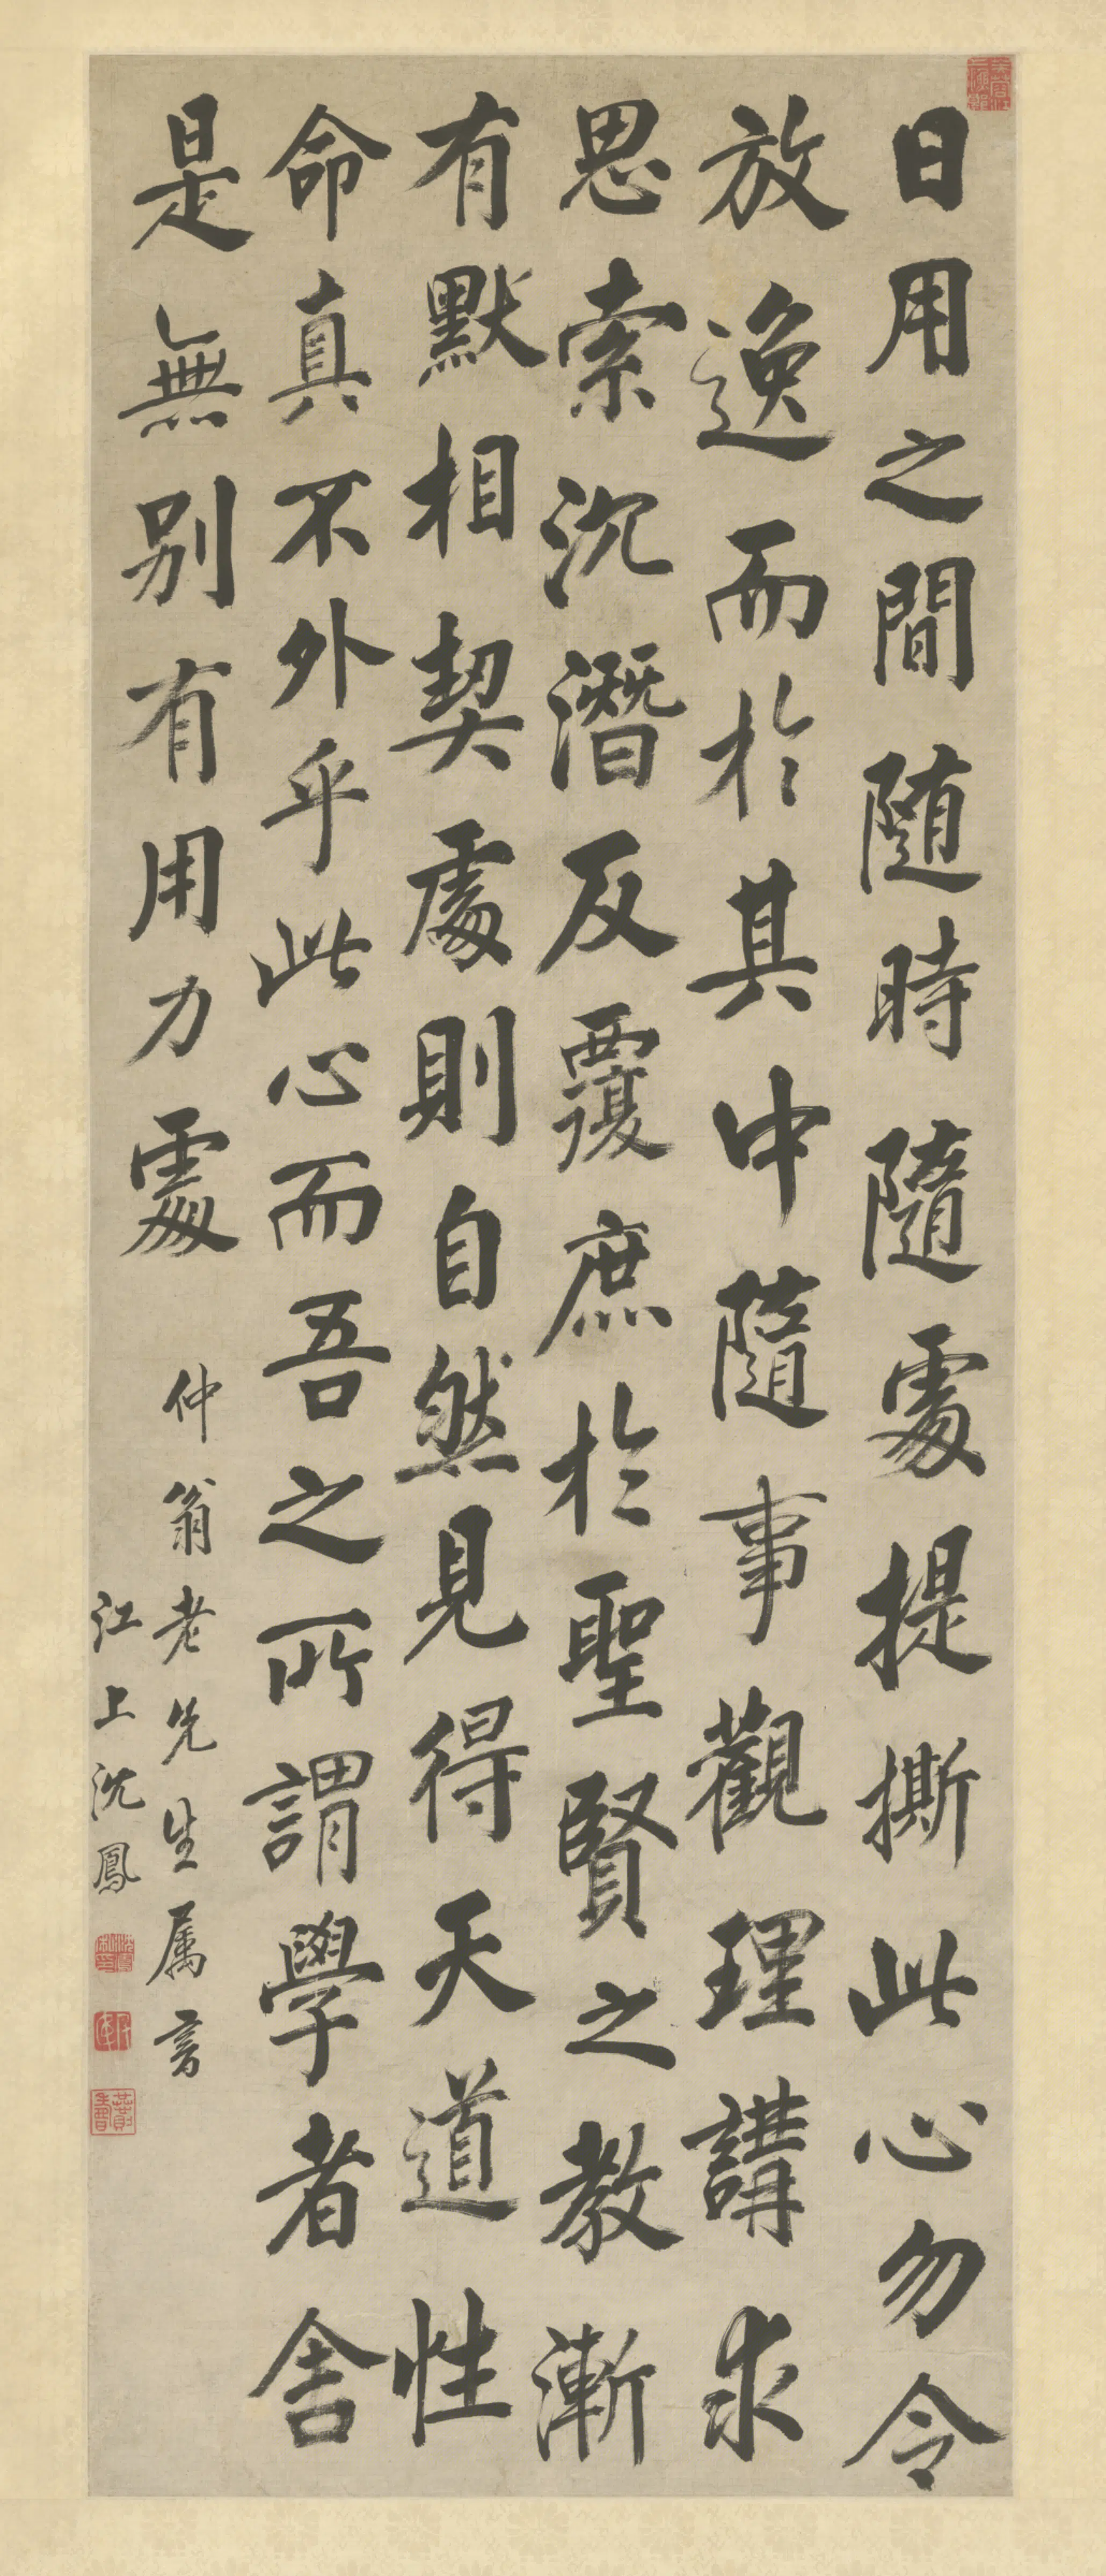 日用之間隨時隨處提撕此心勿令
放逸而於其中隨事觀理講求
思索沉潛反覆庶於聖賢之教漸
有默相契處則自然見得天道性
命真不外乎此心而吾之所謂學者舍
是無別有用力處
仲翁老先生屬書
江上沈鳳